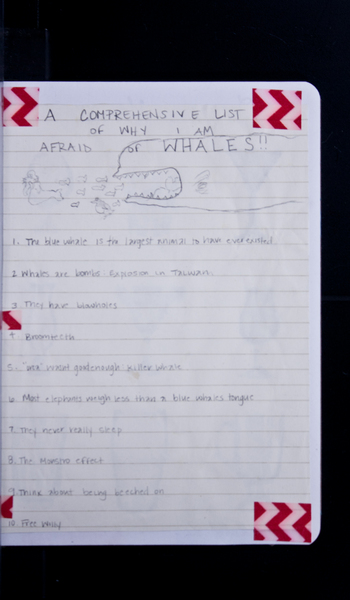 A COMPREHENSIVE LIST
OF WHY I AM
AFRAID OF WHALES!!
1. The blue whale is the largest animal to have ever existed.
2. Whales are bombs. Explosion in Taiwan.
3. They have blowholes
4. Broomteeth
5. "orca" wasnt good enough killer whale
6. Most elephants weigh less than a blue whales tongue
7. They never really sleep
8. The Maestro effect
9. Think about being beeched on
10. Free Willy